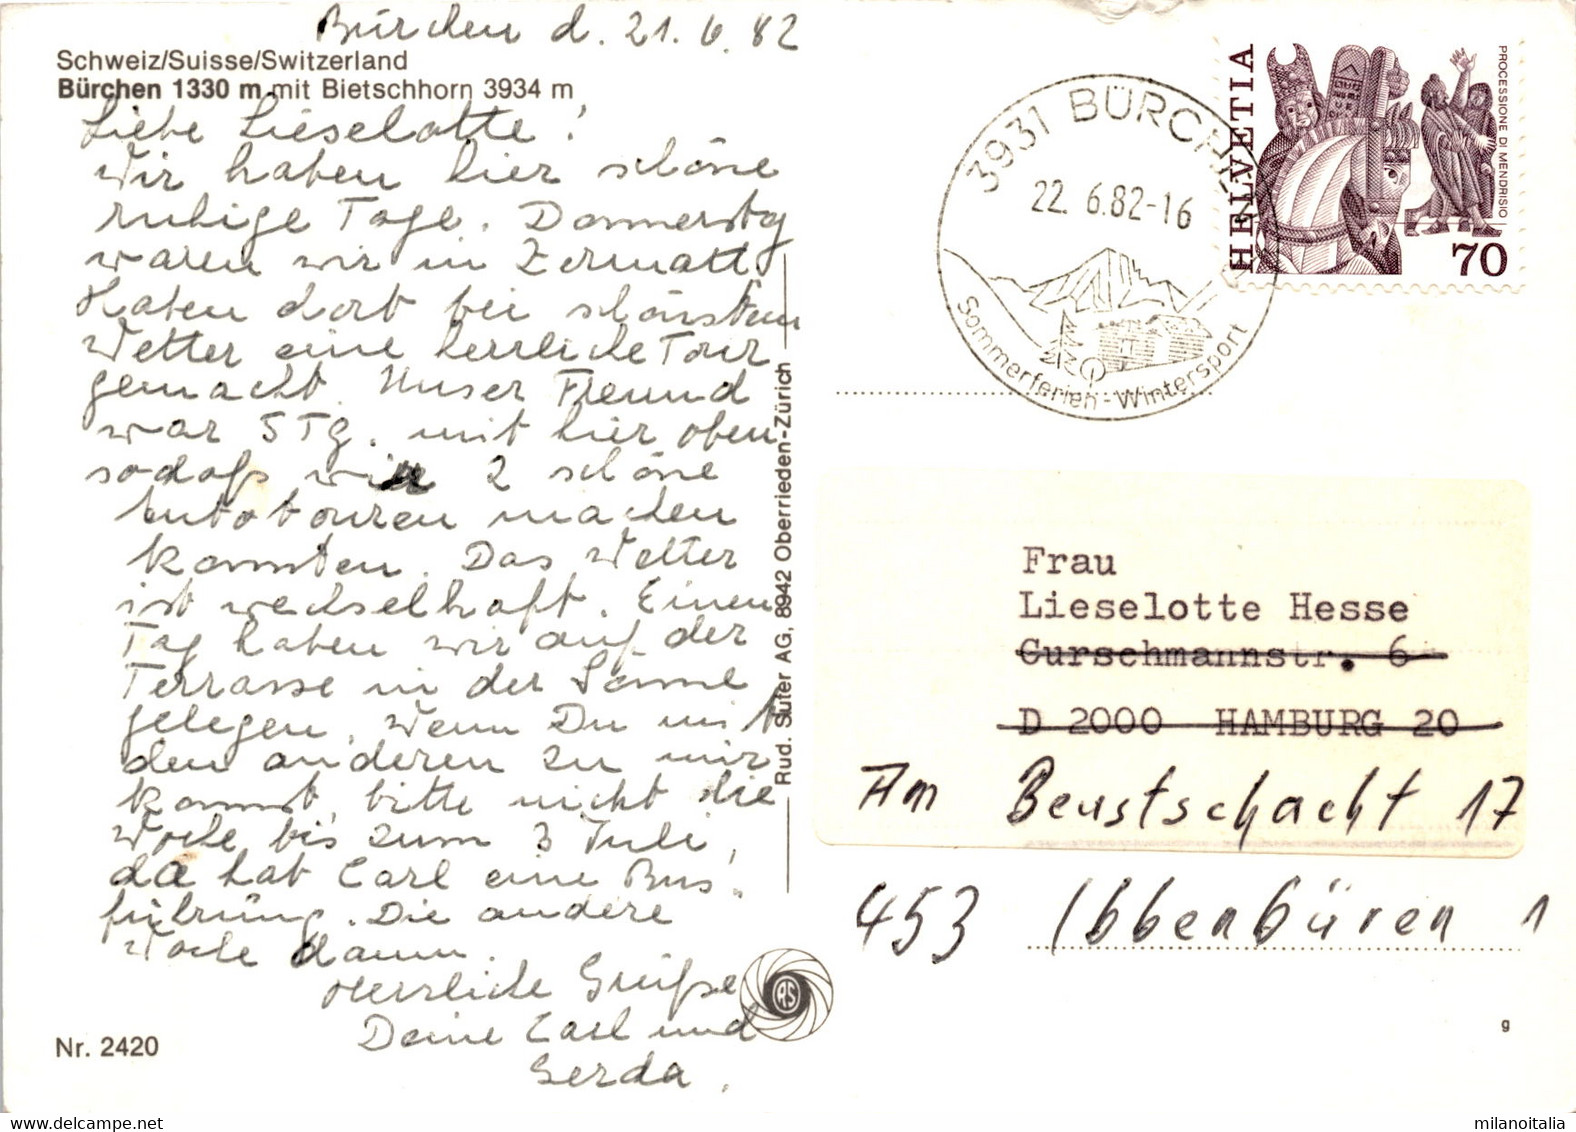 Bürchen d. 21.6.82
Schweiz/Suisse/Switzerland
Bürchen 1330 m mit Bietschhorn 3934 m
Liebe Lieselotte!
Wir haben hier schöne
ruhige Tage. Donnerstag
waren wir in Zermatt.
Haben dort bei schönstem
Wetter eine herrliche Tour
gemacht. Unser Freund
war 5 Tg. mit hier oben
sodaß wir 2 schöne
Autotouren machen
konnten. Das Wetter
ist wechselhaft. Einen
Tag haben wir auf der
Terrasse in der Sonne
gelegen. Wenn Du mit
den anderen zu mir
kommst, bitte nicht die
Woche bis zum 3 Juli,
da hat Carl eine Bus-
führung. Die andere
Woche dann.
Herzliche Grüße
Deine Carl und
Gerda.
Nr. 2420
Rud. Suter AG, 8942 Oberrieden-Zürich
RS
3931 BÜRCHEN
22. 6.82-16
Sommerferien - Wintersport
HELVETIA
PROCESSIONE DI MENDRISIO
70
Frau
Lieselotte Hesse
Curschmannstr. 6
D 2000 HAMBURG 20
Am Beustschacht 17
453 Ibbenbüren 1
g
milanoitalia